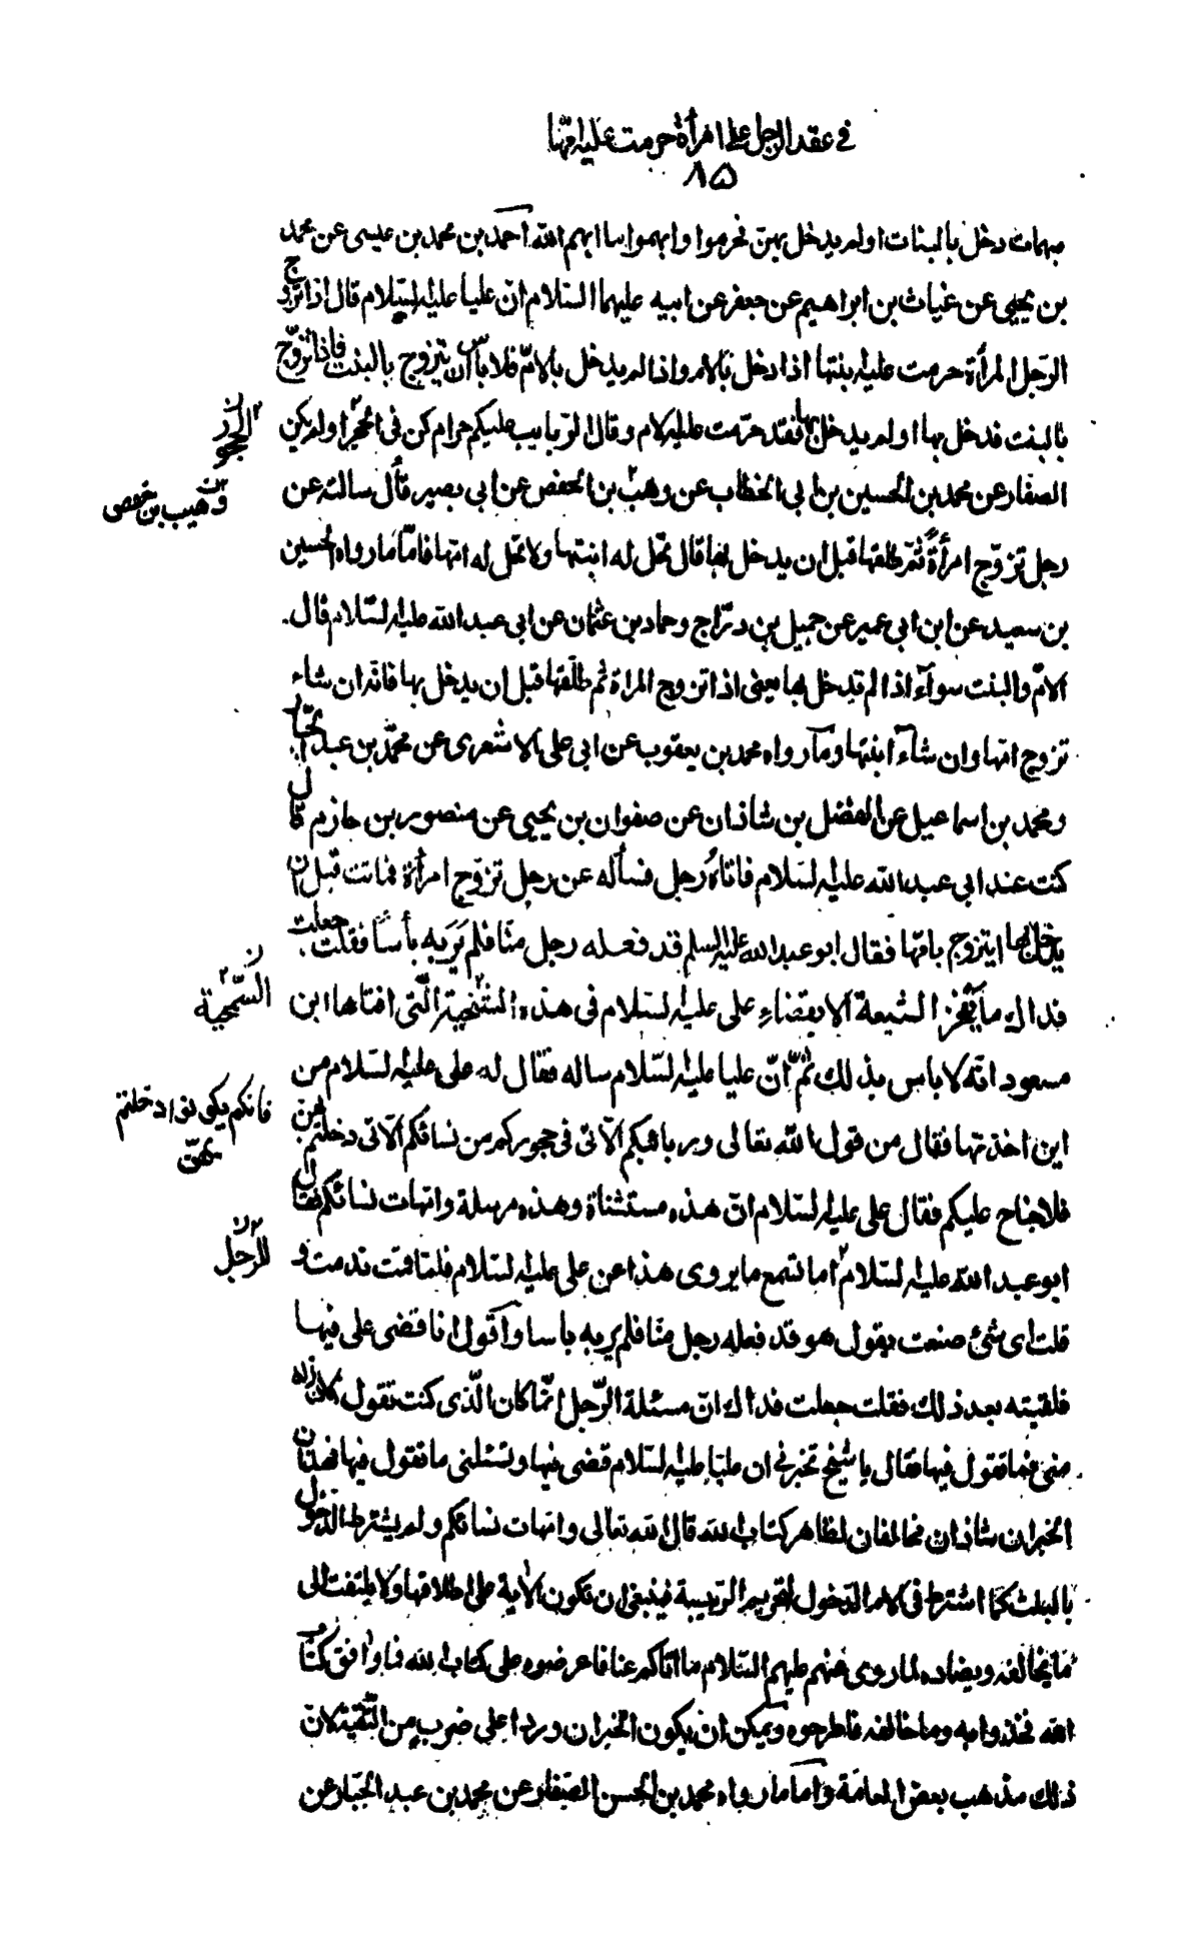 في عقد الرجل على امرأة حرمت عليه امّها
٨۵
مبهمات دخل بالبنات اولم يدخل بهنّ فحرموا وابهموا ما ابهم الله احمد بن محمد بن عيسى عن محمد
بن يحيى عن غياث بن ابراهيم عن جعفر عن ابيه عليهما السّلام انّ عليا عليه السّلام قال اذا تزوج
الرّجل المرأة حرمت عليه بنتها اذا دخل بالام واذا لم يدخل بالامّ فلا بأس ان يتزوج بالبنت فاذا تزوّج
بالبنت فدخل بها اولم يدخل بها فقد حرّمت عليه الام وقال الرّبايب عليكم حرام كن في الحجر اولم يكن
الحجور
الصفار عن محمد بن الحسين بن ابي الخطاب عن وهب بن الحفص عن ابي بصير قال سالته عن
وهيب بن حفص
رجل تزوّج امرأةً ثمّ طلقها قبل ان يدخل بها قال تحل له ابنتها ولا تحل له امّها فامّا ما رواه الحسين
بن سعيد عن ابن ابي عمير عن جميل بن درّاج وحماد بن عثمان عن ابي عبد الله عليه السّلام قال
الامّ والبنت سوآء اذا لم يدخل بها يعني اذا تزوج المراة ثم طلّقها قبل ان يدخل بها فانّه ان شاء
تزوج امّها وان شآء ابنتها وما رواه محمد بن يعقوب عن ابي على الاشعرى عن محمّد بن عبد الجبّار
ومحمد بن اسماعيل عن الفضل بن شاذان عن صفوان بن يحيى عن منصور بن حازم قال
كنت عند ابي عبد الله عليه السّلام فاتاهُ رجل فسأله عن رجل تزوّج امرأة فماتت قبل ان
يدخل بها ايتزوج بامّها فقال ابو عبد الله عليه السلم قد فعله رجل منّا فلم يَرَ به بأساً فقلت جعلت
فداك ما يفخر الشيعة الا بقضاءِ على عليه السّلام في هذه الشمخية الّتي افتاها ابن
السّمحية
مسعود انّه لا باس بذلك ثمّ انّ عليا عليه السّلام ساله فقال له على عليه السّلام من
اين اخذتها فقال من قول اللّه تعالى وربائبكم الّاتي في حجوركم من نسائكم الّاتي دخلتم بهن
فان لم يكونوا دخلتم
بهنّ
فلا جناح عليكم فقال على عليه السّلام انّ هذه مستثناة وهذه مرسلة وامّهات نسائكم فقال
ابو عبد اللّه عليه السّلام اما تسمع ما يروى هذا عن على عليه السّلام فلمّا قمت ندمت و
للرّجل
قلت اى شئ صنعت يقول هو قد فعله رجل منّا فلم ير به باسا واقول انا قضى على فيها
فلقيته بعد ذلك فقلت جعلت فداك انّ مسئلة الرّجل انّما كان الّذى كنت تقول كان زلّة
منى فما تقول فيها فقال يا شيخ تخبرني ان عليّا عليه السّلام قضى فيها وتسئلنى ما تقول فيها فهذان
الخبران شاذان مخالفان لظاهر كتاب الله قال اللّه تعالى وامّهات نسائكم ولم يشترط الدّخول
بالبنت كما اشترط في الام الدّخول لتحريم الرّبيبة فينبغى ان تكون الاية على اطلاقها ولا يلتفت الى
ما يخالفه ويضاده لما روى عنهم عليهم السّلام ما اتاكم عنا فاعرضوه على كتاب الله فما وافق كتاب
اللّه فخذوا به وما خالفه فاطرحوه ويمكن ان يكون الخبران وردا على ضرب من التّقيّة لانّ
ذلك مذهب بعض العامّة وامّا ما رواه محمد بن الحسن الصّفار عن محمد بن عبد الجبّار عن